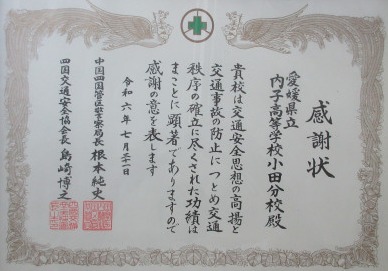 感謝状
愛媛県立
内子高等学校小田分校殿
貴校は交通安全思想の高揚と
交通事故の防止につとめ交通
秩序の確立に尽くされた功績は
まことに顕著でありますので
感謝の意を表します
令和六年七月二十一日
中国四国管区警察局長 根本純史
四国交通安全協会長 島崎博之